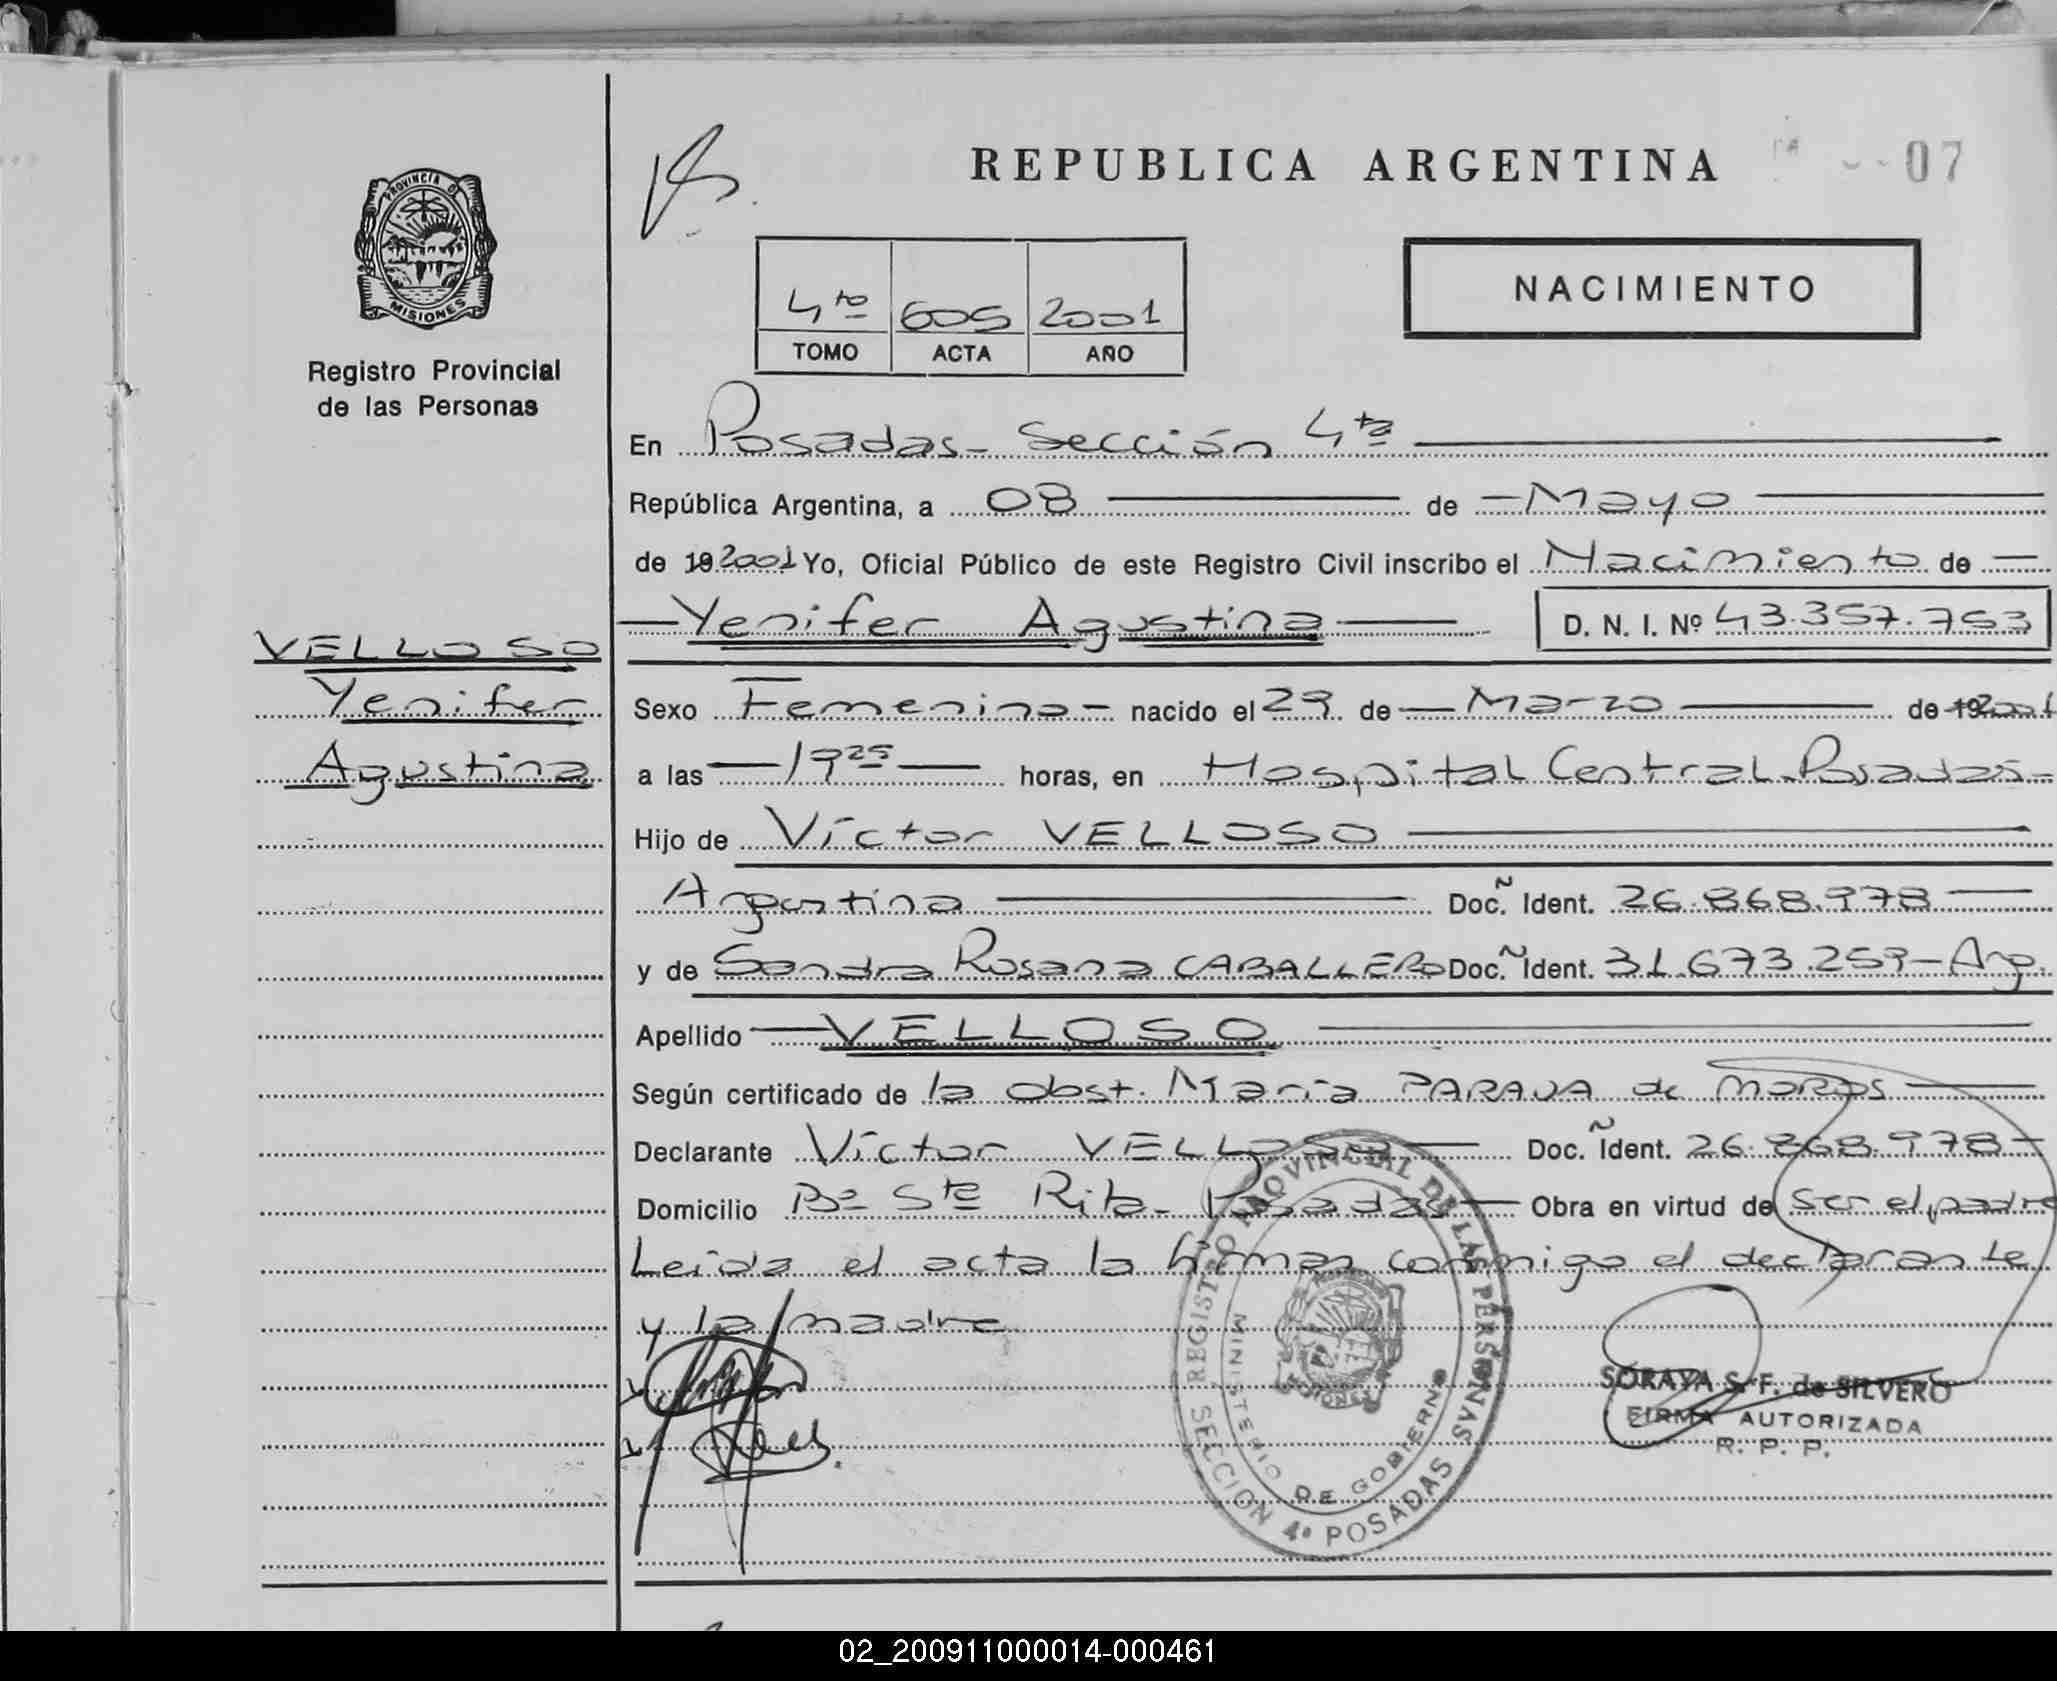 REPUBLICA ARGENTINA
07
PROVINCIA DE
MISIONES
Registro Provincial
de las Personas
NACIMIENTO
4to 605 2001
TOMO ACTA AÑO
En Posadas - Sección 4ta
República Argentina, a 08 de Mayo
de 19 2001 Yo, Oficial Público de este Registro Civil inscribo el Nacimiento de
Yenifer Agustina D. N. I. Nº 43.357.753
VELLOSO
Yenifer
Agustina
Sexo Femenino - nacido el 29 de Marzo de 19 2001
a las 19 25 horas, en Hospital Central Posadas -
Hijo de Víctor VELLOSO
Argentina Doc. Ident. 26.868.978
y de Sandra Rosana CABALLERO Doc. Ident. 31.673.259 - Arg.
Apellido VELLOSO
Según certificado de la Obst. María de
Declarante Víctor VELLOSO Doc. Ident. 26.868.978
Domicilio Bº Sta Rita - Posadas Obra en virtud de ser el padre
Leida el acta la firman conmigo el declarante
y la madre
REGISTRO PROVINCIAL DE LAS PERSONAS
MINISTERIO DE GOBIERNO
SECCION 4ª POSADAS
SORAYA S. F. de SILVERO
FIRMA AUTORIZADA
R. P. P.
02_200911000014-000461